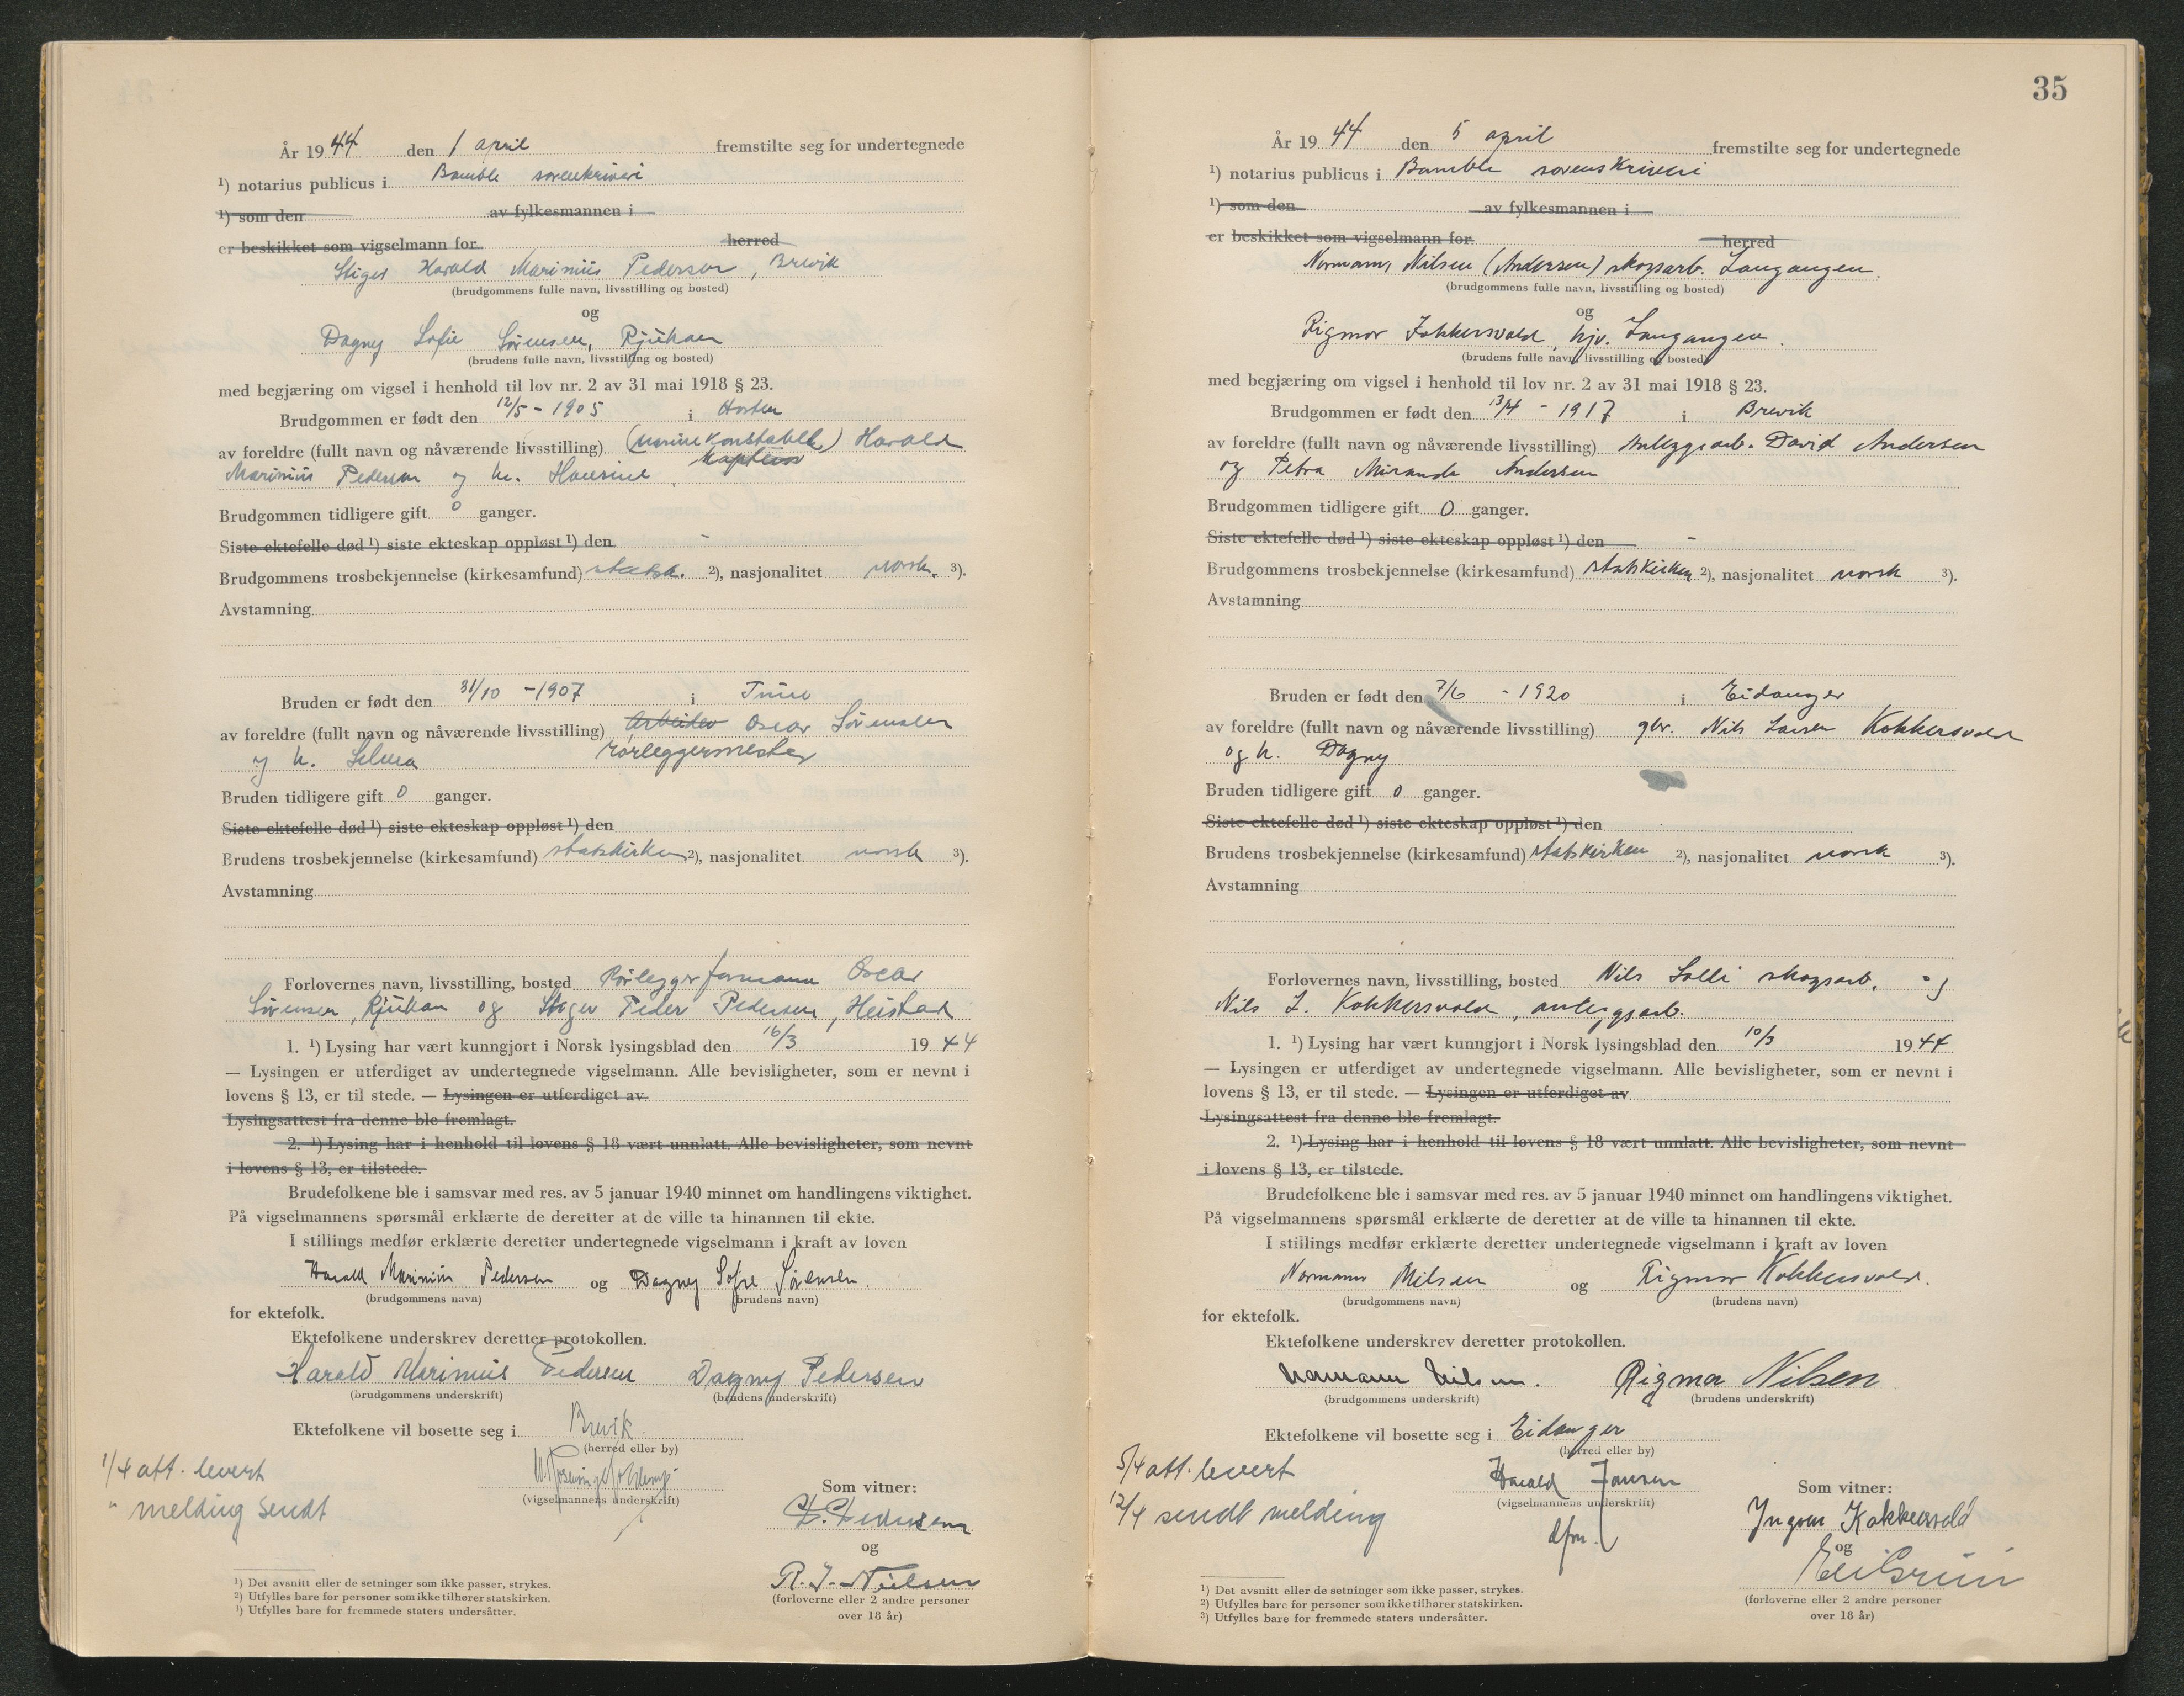 År 1944 den 1 april fremstilte seg for undertegnede
¹) notarius publicus i Bamble sorenskriveri
¹) som den av fylkesmannen i
er beskikket som vigselmann for herred
Stiger Harald Marinius Pedersen, Brevik
(brudgommens fulle navn, livsstilling og bosted)
og
Dagny Sofie Sørensen, Rjukan
(brudens fulle navn, livsstilling og bosted)
med begjæring om vigsel i henhold til lov nr. 2 av 31 mai 1918 § 23.
Brudgommen er født den 12/5 - 1905 i Horten
av foreldre (fullt navn og nåværende livsstilling) (marinekonstabel) Harald
kaptein
Marinius Pedersen og h.
Brudgommen tidligere gift 0 ganger.
Siste ektefelle død ¹) siste ekteskap oppløst ¹) den -
Brudgommens trosbekjennelse (kirkesamfund) statsk. ²), nasjonalitet norsk. ³).
Avstamning
Bruden er født den 31/10 - 1907 i
av foreldre (fullt navn og nåværende livsstilling) Arbeider Oscar Sørensen
og h. Selma rørleggermester
Bruden tidligere gift 0 ganger.
Siste ektefelle død ¹) siste ekteskap oppløst ¹) den
Brudens trosbekjennelse (kirkesamfund) statskirken ²), nasjonalitet norsk ³).
Avstamning
Forlovernes navn, livsstilling, bosted Rørleggerformann Oscar
Sørensen, Rjukan og Stiger Peder Pedersen, Heistad
1. ¹) Lysing har vært kunngjort i Norsk lysingsblad den 16/3 1944
— Lysingen er utferdiget av undertegnede vigselmann. Alle bevisligheter, som er nevnt i
lovens § 13, er til stede. — Lysingen er utferdiget av
Lysingsattest fra denne ble fremlagt.
2. ¹) Lysing har i henhold til lovens § 18 vært unnlatt. Alle bevisligheter, som nevnt
i lovens § 13, er tilstede.
Brudefolkene ble i samsvar med res. av 5 januar 1940 minnet om handlingens viktighet.
På vigselmannens spørsmål erklærte de deretter at de ville ta hinannen til ekte.
I stillings medfør erklærte deretter undertegnede vigselmann i kraft av loven
Harald Marinius Pedersen og Dagny Sofie Sørensen.
(brudgommens navn) (brudens navn)
for ektefolk.
Ektefolkene underskrev deretter protokollen.
Harald Marinius Pedersen Dagny Pedersen
(brudgommens underskrift) (brudens underskrift)
Ektefolkene vil bosette seg i Brevik
(herred eller by)
1/4 att. levert
" melding sendt
(vigselmannens underskrift)
Som vitner:
P. Pedersen
og
R. J. Nielsen
(forloverne eller 2 andre personer
over 18 år)
¹) Det avsnitt eller de setninger som ikke passer, strykes.
²) Utfylles bare for personer som ikke tilhører statskirken.
³) Utfylles bare for fremmede staters undersåtter.
35
År 1944 den 5 april fremstilte seg for undertegnede
¹) notarius publicus i Bamble sorenskriveri
¹) som den av fylkesmannen i
er beskikket som vigselmann for herred
Normann Nilsen (Andersen) skogsarb. Langangen.
(brudgommens fulle navn, livsstilling og bosted)
og
Rigmor Kokkersvold, hjv. Langangen.
(brudens fulle navn, livsstilling og bosted)
med begjæring om vigsel i henhold til lov nr. 2 av 31 mai 1918 § 23.
Brudgommen er født den 13/4 - 1917 i Brevik
av foreldre (fullt navn og nåværende livsstilling) Anleggsarb. David Andersen
og Petra Miranda Andersen
Brudgommen tidligere gift 0 ganger.
Siste ektefelle død ¹) siste ekteskap oppløst ¹) den -
Brudgommens trosbekjennelse (kirkesamfund) statskirken ²), nasjonalitet norsk ³).
Avstamning
Bruden er født den 7/6 - 1920 i Eidanger
av foreldre (fullt navn og nåværende livsstilling) gbr. Nils Larsen Kokkersvold
og h. Dagny
Bruden tidligere gift 0 ganger.
Siste ektefelle død ¹) siste ekteskap oppløst ¹) den
Brudens trosbekjennelse (kirkesamfund) statskirken ²), nasjonalitet norsk ³).
Avstamning
Forlovernes navn, livsstilling, bosted Nils Solli skogsarb. og
Nils L. Kokkersvold, anleggsarb.
1. ¹) Lysing har vært kunngjort i Norsk lysingsblad den 10/3 1944
— Lysingen er utferdiget av undertegnede vigselmann. Alle bevisligheter, som er nevnt i
lovens § 13, er til stede. — Lysingen er utferdiget av
Lysingsattest fra denne ble fremlagt.
2. ¹) Lysing har i henhold til lovens § 18 vært unnlatt. Alle bevisligheter, som nevnt
i lovens § 13, er tilstede.
Brudefolkene ble i samsvar med res. av 5 januar 1940 minnet om handlingens viktighet.
På vigselmannens spørsmål erklærte de deretter at de ville ta hinannen til ekte.
I stillings medfør erklærte deretter undertegnede vigselmann i kraft av loven
Normann Nilsen og Rigmor Kokkersvold.
(brudgommens navn) (brudens navn)
for ektefolk.
Ektefolkene underskrev deretter protokollen.
Normann Nilsen. Rigmor Nilsen
(brudgommens underskrift) (brudens underskrift)
Ektefolkene vil bosette seg i Eidanger
(herred eller by)
5/4 att. levert
12/4 sendt melding
Harald Jansen
(vigselmannens underskrift)
dfm.
Som vitner:
Ingvar Kokkersvold
og
(forloverne eller 2 andre personer
over 18 år)
¹) Det avsnitt eller de setninger som ikke passer, strykes.
²) Utfylles bare for personer som ikke tilhører statskirken.
³) Utfylles bare for fremmede staters undersåtter.